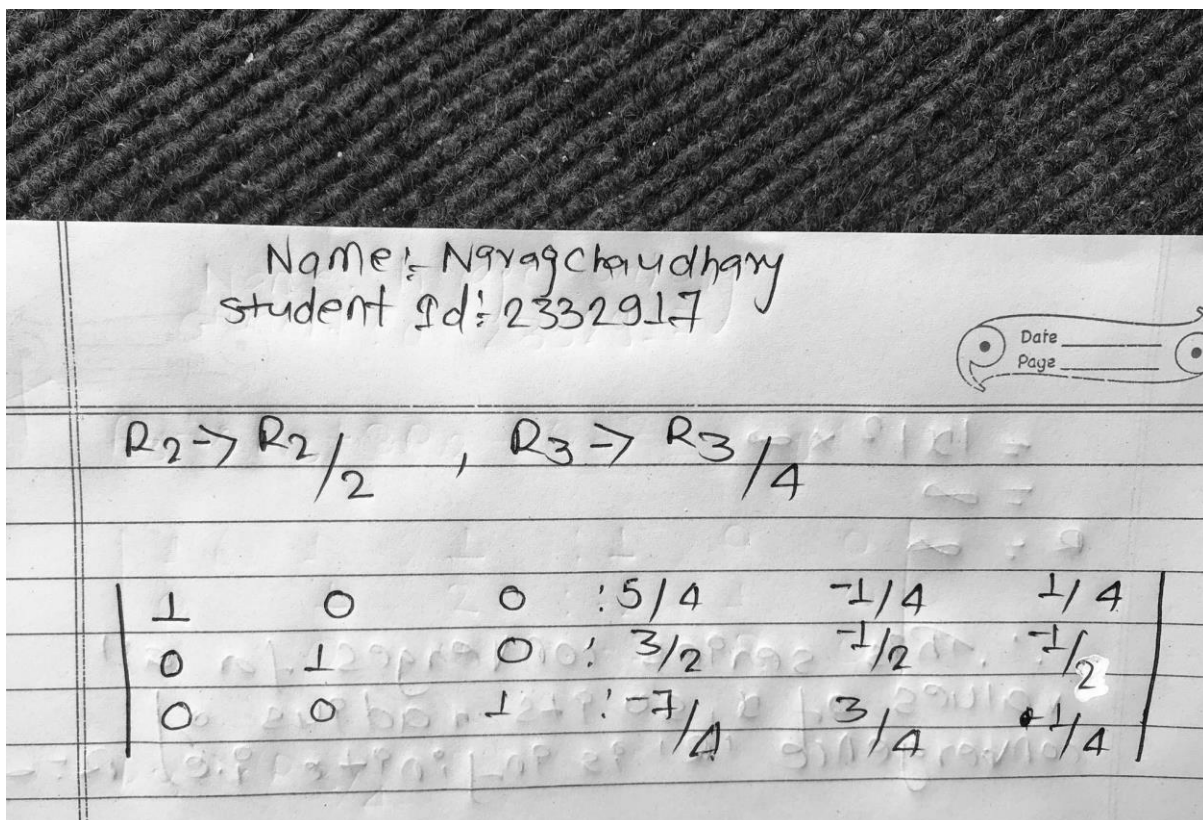 Name:- Narag Chaudhary
Student Id: 2332917
Date
Page
R2 -> R2/2 , R3 -> R3/4
1 0 0 : 5/4 -1/4 1/4
0 1 0 : 3/2 -1/2 -1/2
0 0 1 : -7/4 3/4 1/4